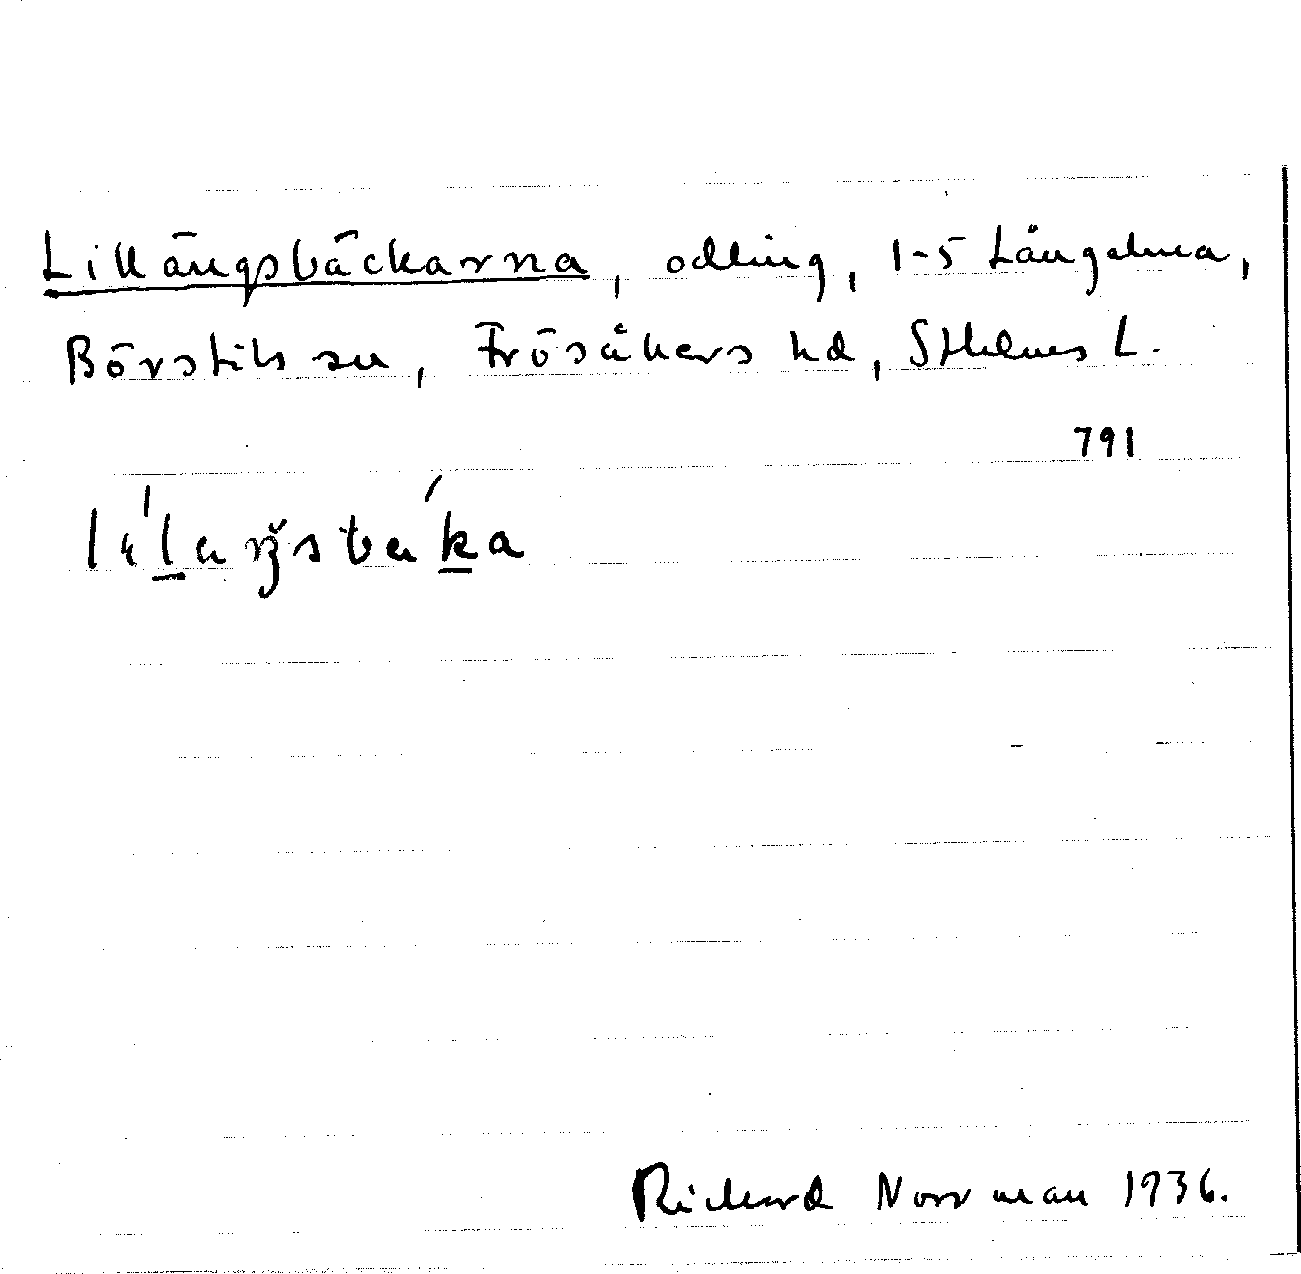 Lillängsbäckarna, odling, 1-5 Långalma,
Börstils sn, Frösåkers hd, Sthlms L.
791
Rickard Norrman 1936.